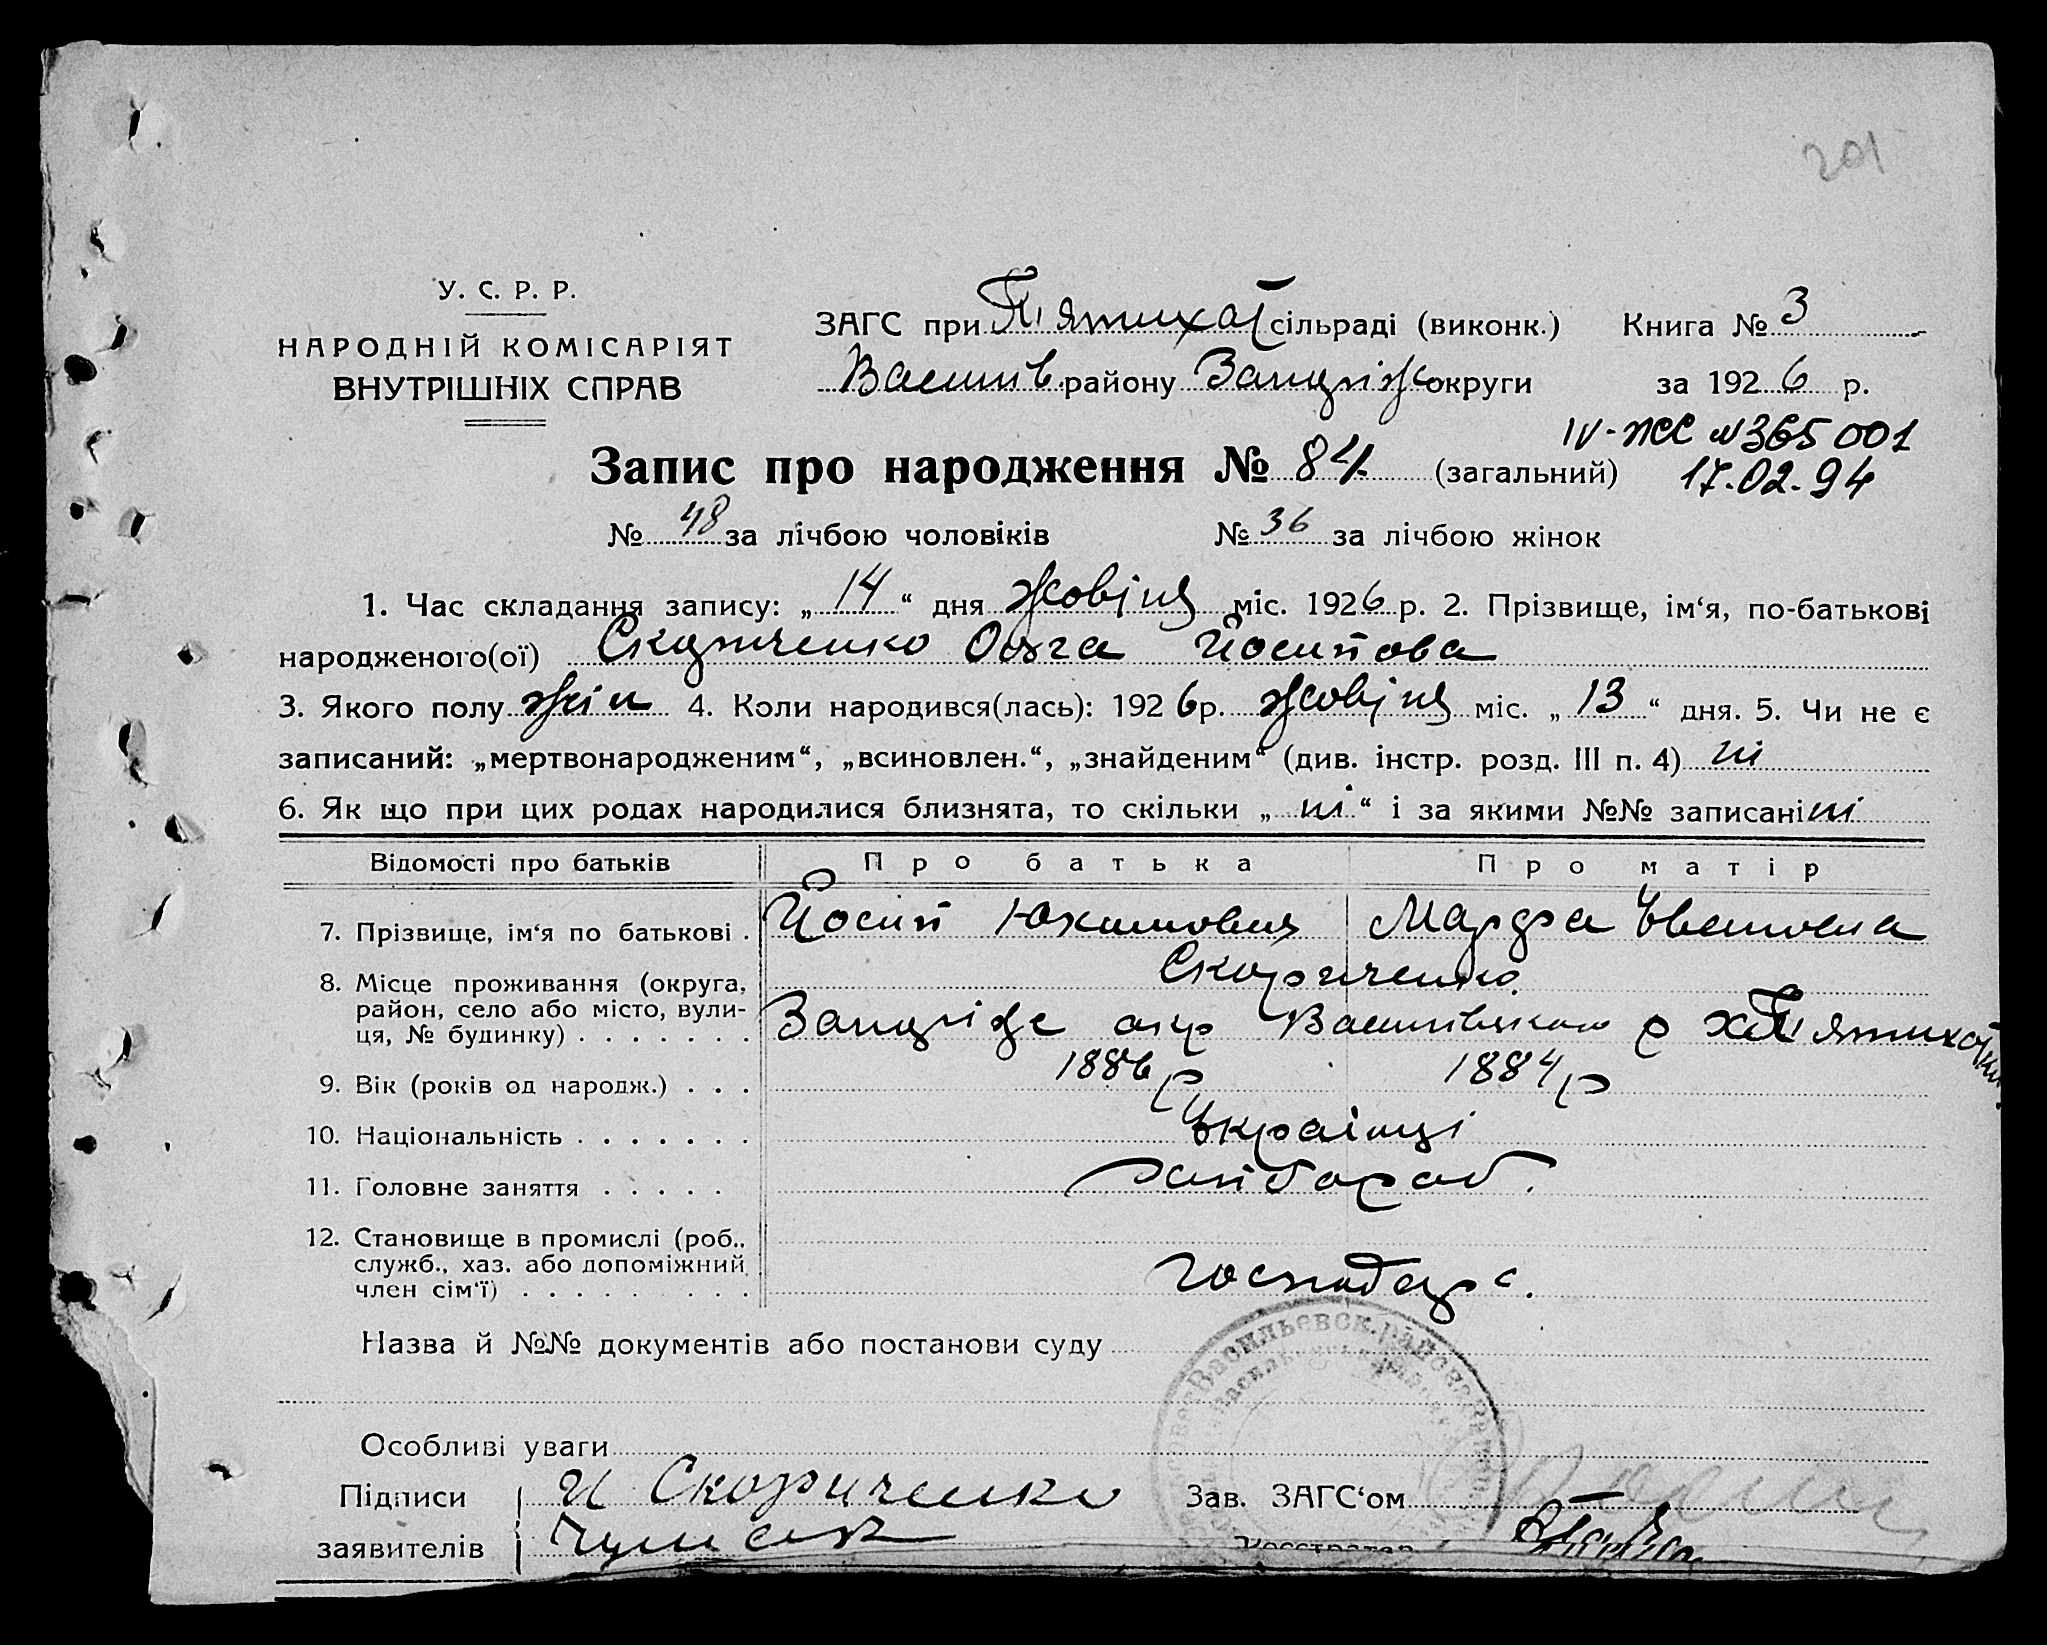 201
У. С. Р. Р.
НАРОДНІЙ КОМІСАРІЯТ
ВНУТРІШНІХ СПРАВ
ЗАГС при П'ятихат сільраді (виконк.) Книга № 3
Васил́ів. району Запоріж округи за 1926 р.
IV-ЖС № 365001
17.02.94
Запис про народження № 84. (загальний)
№ 48 за лічбою чоловіків № 36 за лічбою жінок
1. Час складання запису: „14“ дня міс. 1926 р. 2. Прізвище, ім‘я, по-батькові
народженого(ої) Скориченко Ольга Йосипова
3. Якого полу жін 4. Коли народився(лась): 1926р. міс. „13“ дня. 5. Чи не є
записаний: „мертвонародженим“, „всиновлен.“, „знайденим“ (див. інстр. розд. III п. 4) ні
6. Як що при цих родах народилися близнята, то скільки „ні“ і за якими №№ записані ні
Відомості про батьків Про батька Про матір
7. Прізвище, ім‘я по батькові . Йосип Юхимович Марфа Ивановна
Скориченко
8. Місце проживання (округа,
район, село або місто, вули-
ця, № будинку) . . . . . . . Запоріж окр Василівського р х П'ятихатки
9. Вік (років од народж.) . . . 1886 р 1884 р
10. Національність . . . . . . . Українці
11. Головне заняття . . . . .
12. Становище в промислі (роб..
служб., хаз. або допоміжний
член сім‘ї) . . . . . . . . . господар
Назва й №№ документів або постанови суду
Васильевск. район
Особливі уваги
Підписи И Скориченко Зав. ЗАГС‘ом
заявителів